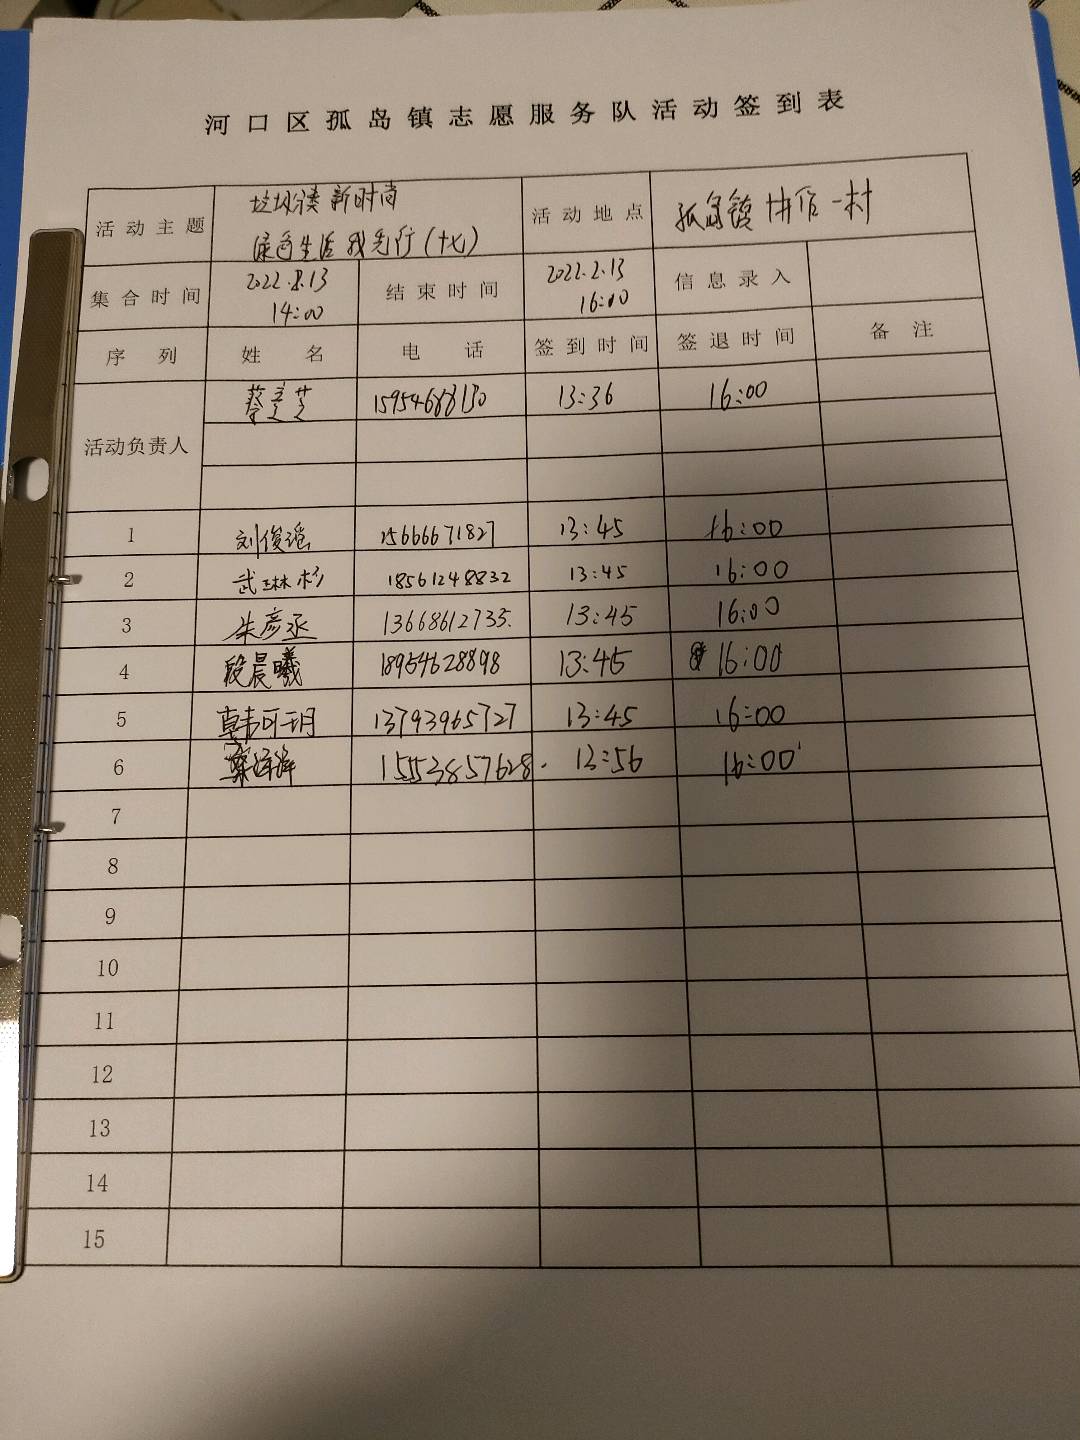 河口区孤岛镇志愿服务队活动签到表
活动主题 垃圾 新时尚 活动地点 孤岛镇 一村
绿色生活 我先行(十七)
集合时间 2022.8.13 结束时间 2022.2.13 信息录入
14:00 16:00
序列 姓名 电话 签到时间 签退时间 备注
活动负责人 蔡 芝 15954688130 13:36 16:00
1 刘俊瑶 15666671827 13:45 16:00
2 武琳杉 18561248832 13:45 16:00
3 朱彦丞 13668612735. 13:45 16:00
4 段晨曦 18954628898 13:45 16:00
5 韩可玥 13793965727 13:45 16:00
6 1553857628. 13:56 16:00
7
8
9
10
11
12
13
14
15